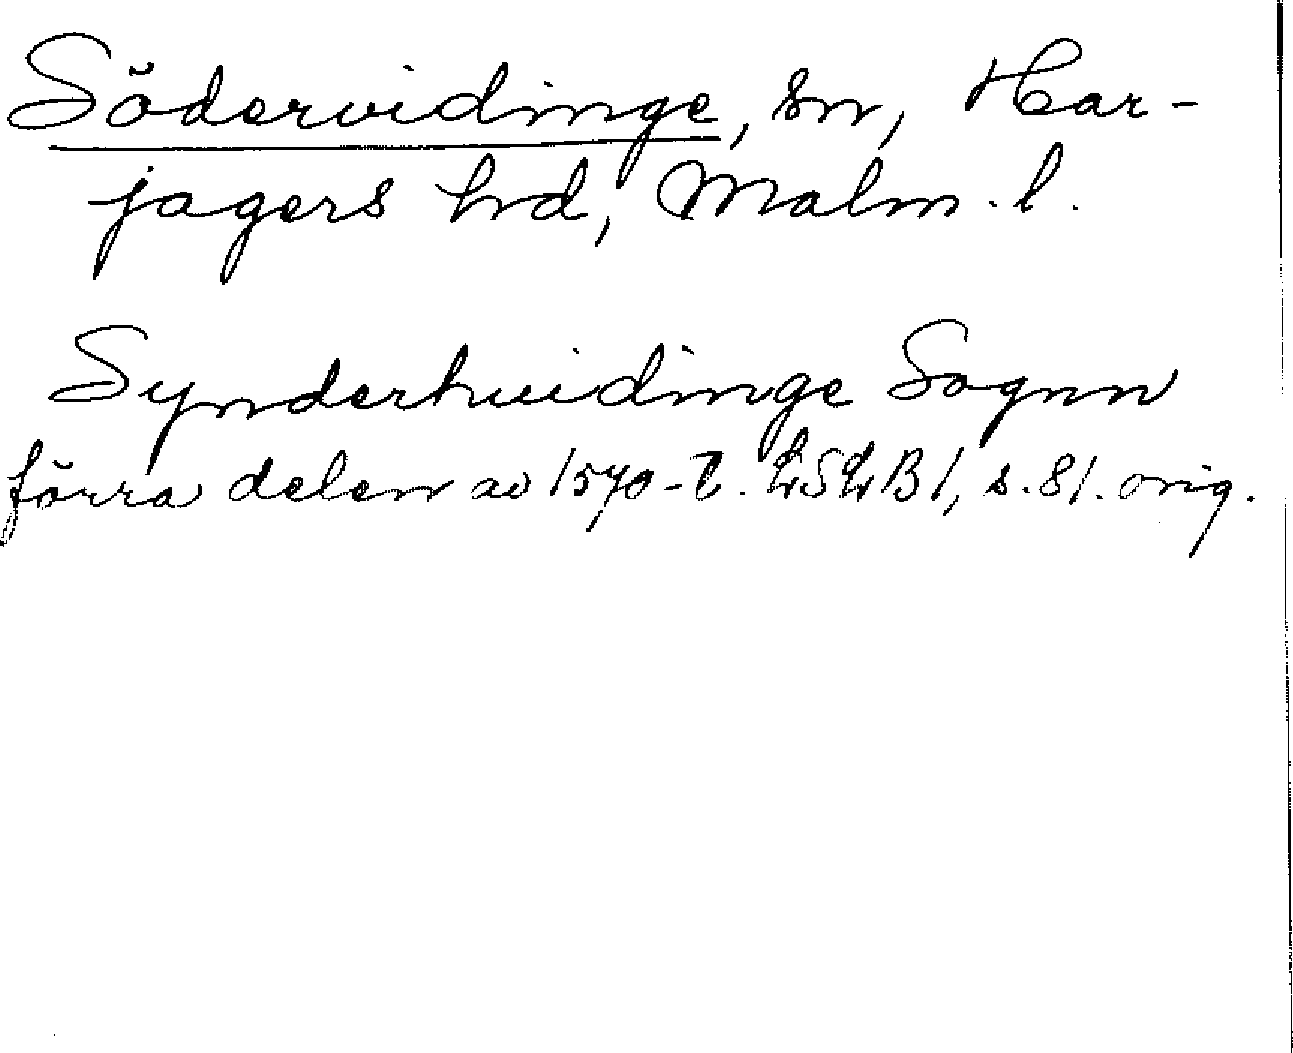 Södervidinge, sn, Har-
jagers hrd, Malm. l.
Synderhuidinge Sognn
förra delen av 1570-t. LSLB1, s. 81. orig.